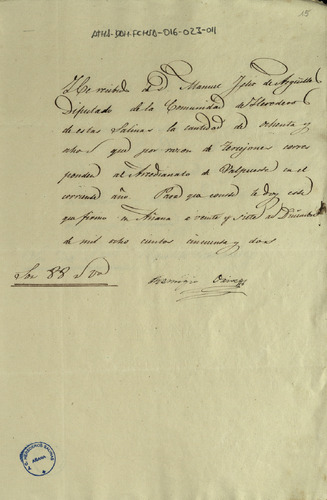 ATHA-DAH-FCHSB-016-023-011
15
He recibido de D. Manuel Ysho de Argüelles
Diputado de la Comunidad de Herederos
de estas Salinas la cantidad de ochenta y
ocho rs que por razon de Torrejones corres
ponden al Arcedianato de Valpuesta en el
corriente año. Para que conste le doy este
que firmo en Añana a veinte y siete de Diciembre
de mil ocho cientos cincuenta y dos
Son 88 rs vn
Remigio
G. HEREDEROS SALINAS
AÑANA